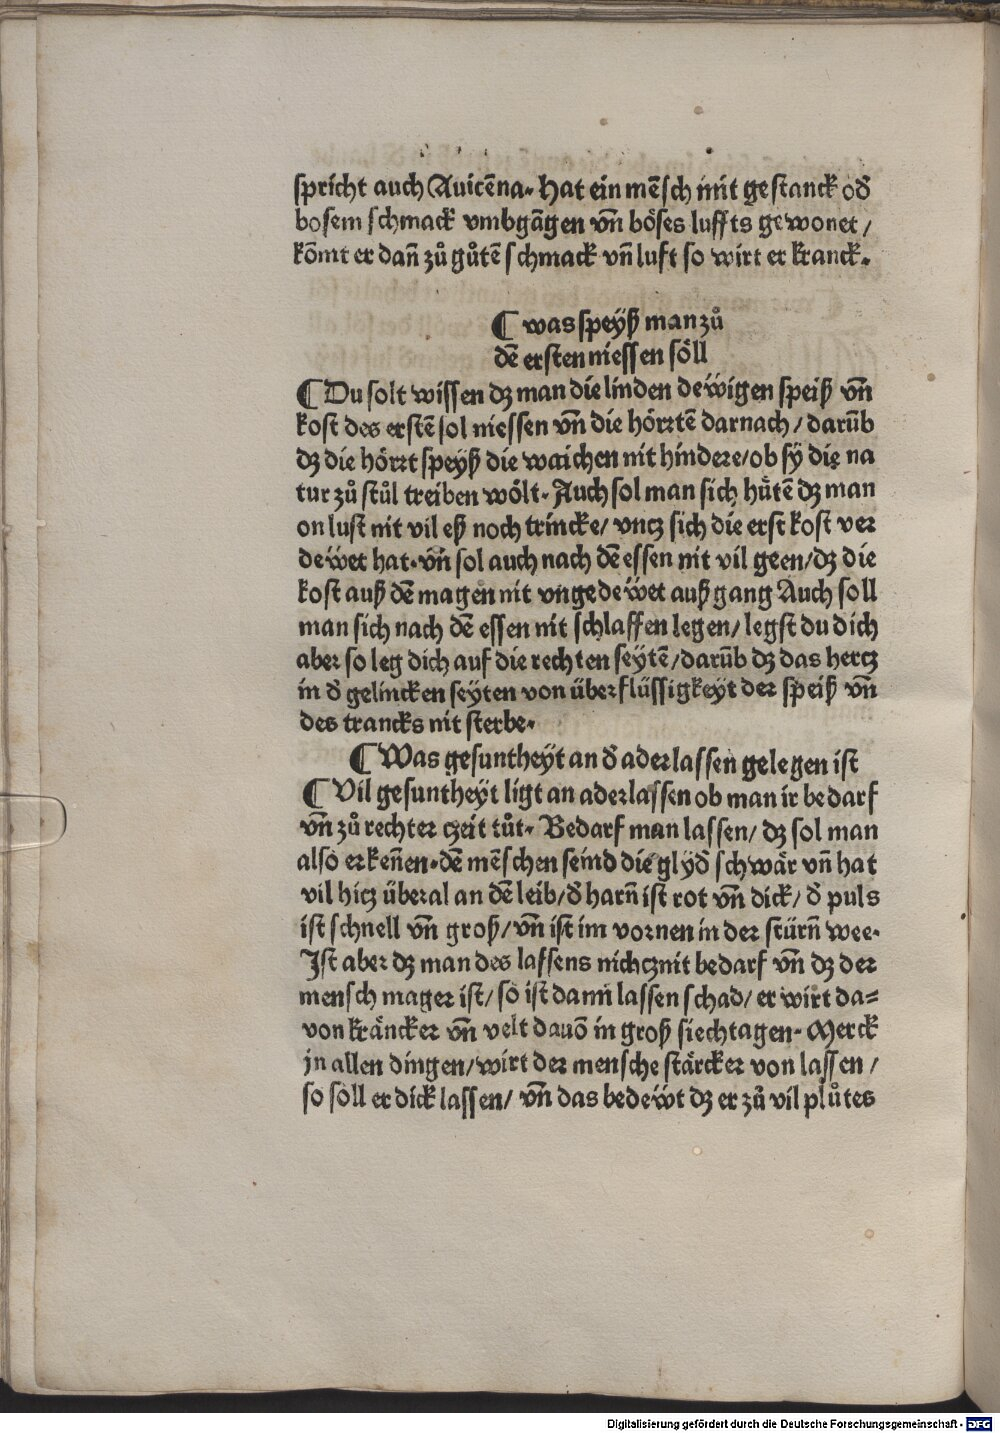 spricht auch Auicēna. Hat ein mēsch mit gestanck od̄
bosem schmack vmbgāgen vn̄ böses luffts gewonet /
kōmt er dan̄ zů gůtē schmack vn̄ luft so wirt er kranck.
¶ was speyß man zů
dē ersten niessen söll
¶ Du solt wissen dz man die linden dewigen speiß vn̄
kost des erstē sol niessen vn̄ die hörztē darnach / darūb
dz die hörzt speyß die waichen nit hindere / ob sy die na
tur zů stůl treiben wölt. Auch sol man sich hütē dz man
on lust nit vil eß noch trincke / vncz sich die erst kost ver
dewet hat. vn̄ sol auch nach dē essen nit vil geen / dz die
kost auß dē magen nit vngedewet auß gang Auch soll
man sich nach dē essen nit schlaffen legen / legst du dich
aber so leg dich auf die rechten seytē / darūb dz das hercz
in d̄ gelincken seyten von überflüssigkeyt der speiß vn̄
des trancks nit sterbe.
¶ Was gesuntheyt an d̄ aderlassen gelegen ist
¶ Vil gesuntheyt ligt an aderlassen ob man ir bedarf
vn̄ zů rechter czeit tůt. Bedarf man lassen / dz sol man
also erken̄en. dē mēschen seind die glyd̄ schwär vn̄ hat
vil hicz überal an dē leib / d̄ harn̄ ist rot vn̄ dick / d̄ puls
ist schnell vn̄ groß / vn̄ ist im vornen in der stürn̄ wee.
Ist aber dz man des lassens nichcznit bedarf vn̄ dz der
mensch mager ist / so ist dann lassen schad / er wirt da=
von kräncker vn̄ velt dauō in groß siechtagen. Merck
in allen dingen / wirt der mensche stärcker von lassen /
so soll er dick lassen / vn̄ das bedewt dz er zů vil plůtes
Digitalisierung gefördert durch die Deutsche Forschungsgemeinschaft - DFG